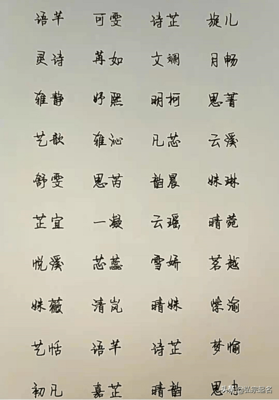 语芊 可雯 诗芷 旋儿
灵诗 苒如 文斓 月畅
雅静 妤熙 明柯 思菁
艺歆 雅沁 凡芯 云溪
舒雯 思芮 韵晨 姝琳
芷宜 一凝 云瑶 晴菀
悦溪 芯蕊 雪妍 茗越
姝薇 清岚 晴姝 渝
艺恬 语芊 诗芷 梦愉
初凡 嘉芷 晴韵 思